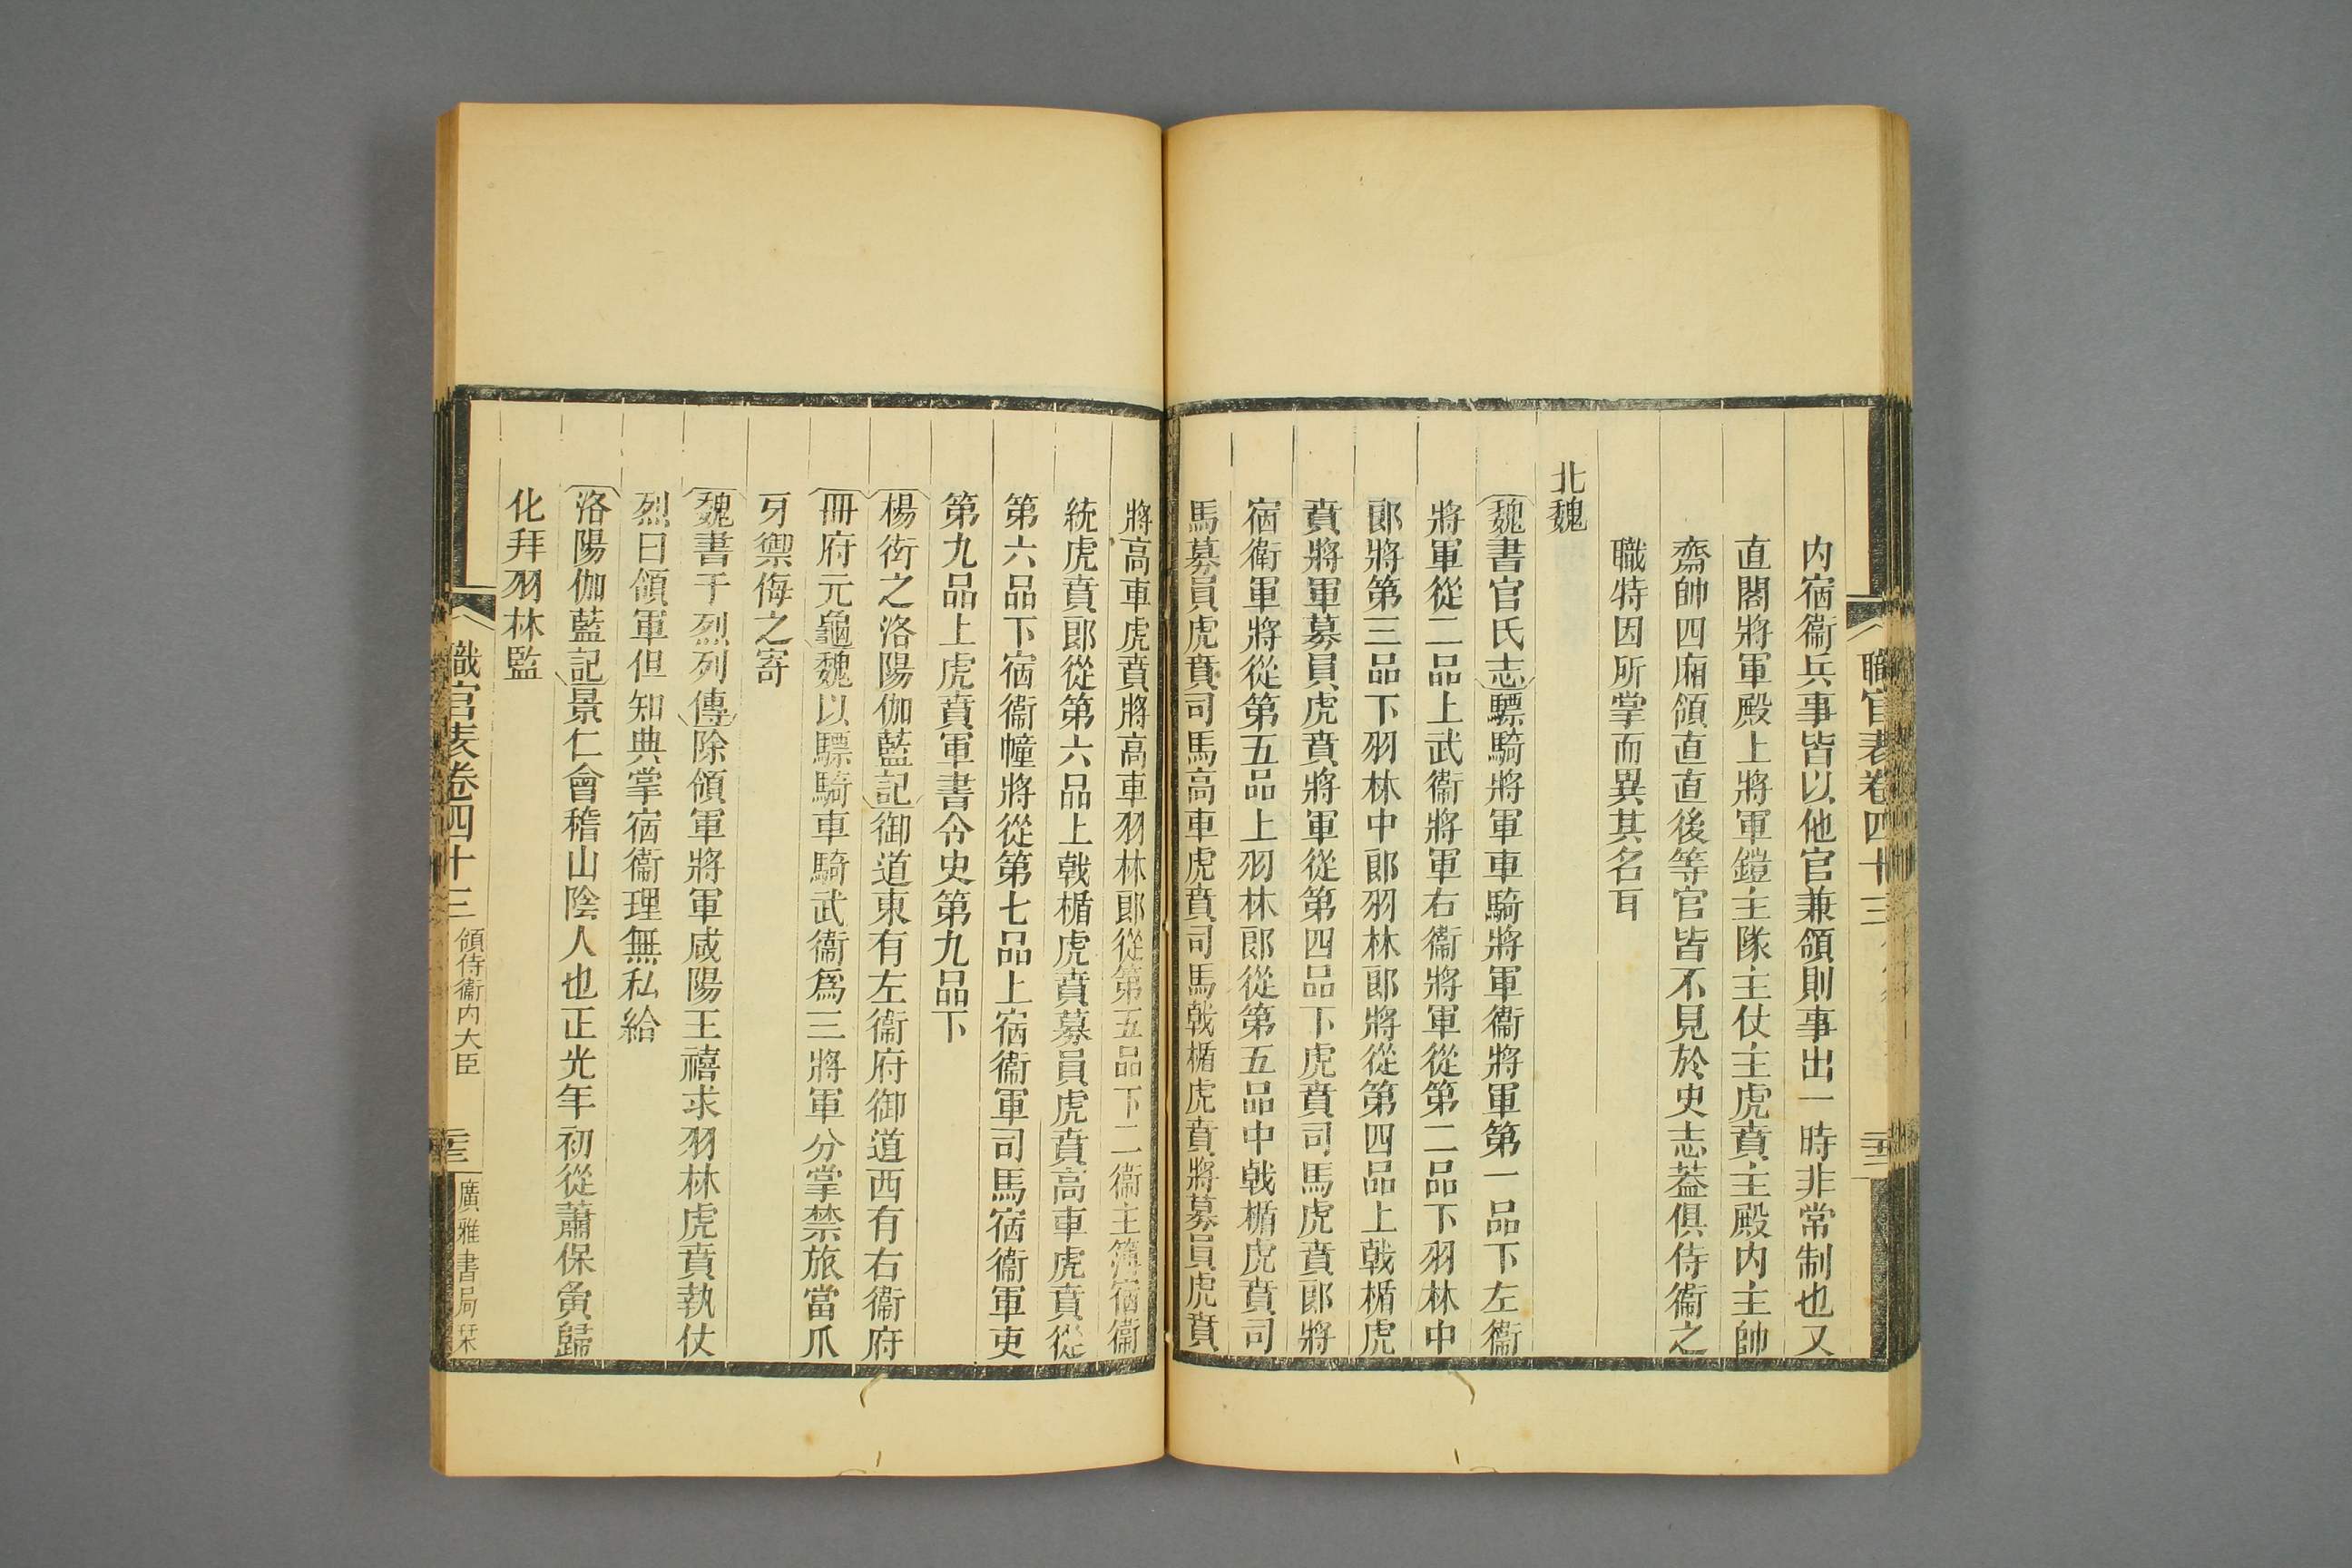 內宿衞兵事皆以他官兼領則事出一時非常制也又
直閣將軍殿上將軍鎧主隊主仗主虎賁主殿內主帥
齋帥四廂領直直後等官皆不見於史志葢俱侍衞之
職特因所掌而異其名耳
北魏
魏書官氏志驃騎將軍車騎將軍衞將軍第一品下左衞
將軍從二品上武衞將軍右衞將軍從第二品下羽林中
郎將第三品下羽林中郎羽林郎將從第四品上戟楯虎
賁將軍募員虎賁將軍從第四品下虎賁司馬虎賁郎將
宿衛軍將從第五品上羽林郎從第五品中戟楯虎賁司
馬募員虎賁司馬高車虎賁司馬戟楯虎賁將募員虎賁
將高車虎賁將高車羽林郎從第五品下二衞主簿宿衞
統虎賁郎從第六品上戟楯虎賁募員虎賁高車虎賁從
第六品下宿衞幢將從第七品上宿衞軍司馬宿衞軍吏
第九品上虎賁軍書令史第九品下
楊衒之洛陽伽藍記御道東有左衞府御道西有右衞府
冊府元龜魏以驃騎車騎武衞爲三將軍分掌禁旅當爪
牙禦侮之寄
魏書于烈列傳除領軍將軍咸陽王禧求羽林虎賁執仗
烈曰領軍但知典掌宿衞理無私給
洛陽伽藍記景仁會稽山陰人也正光年初從蕭保夤歸
化拜羽林監
職官表卷四十三 領侍衞內大臣 二十三 廣雅書局栞